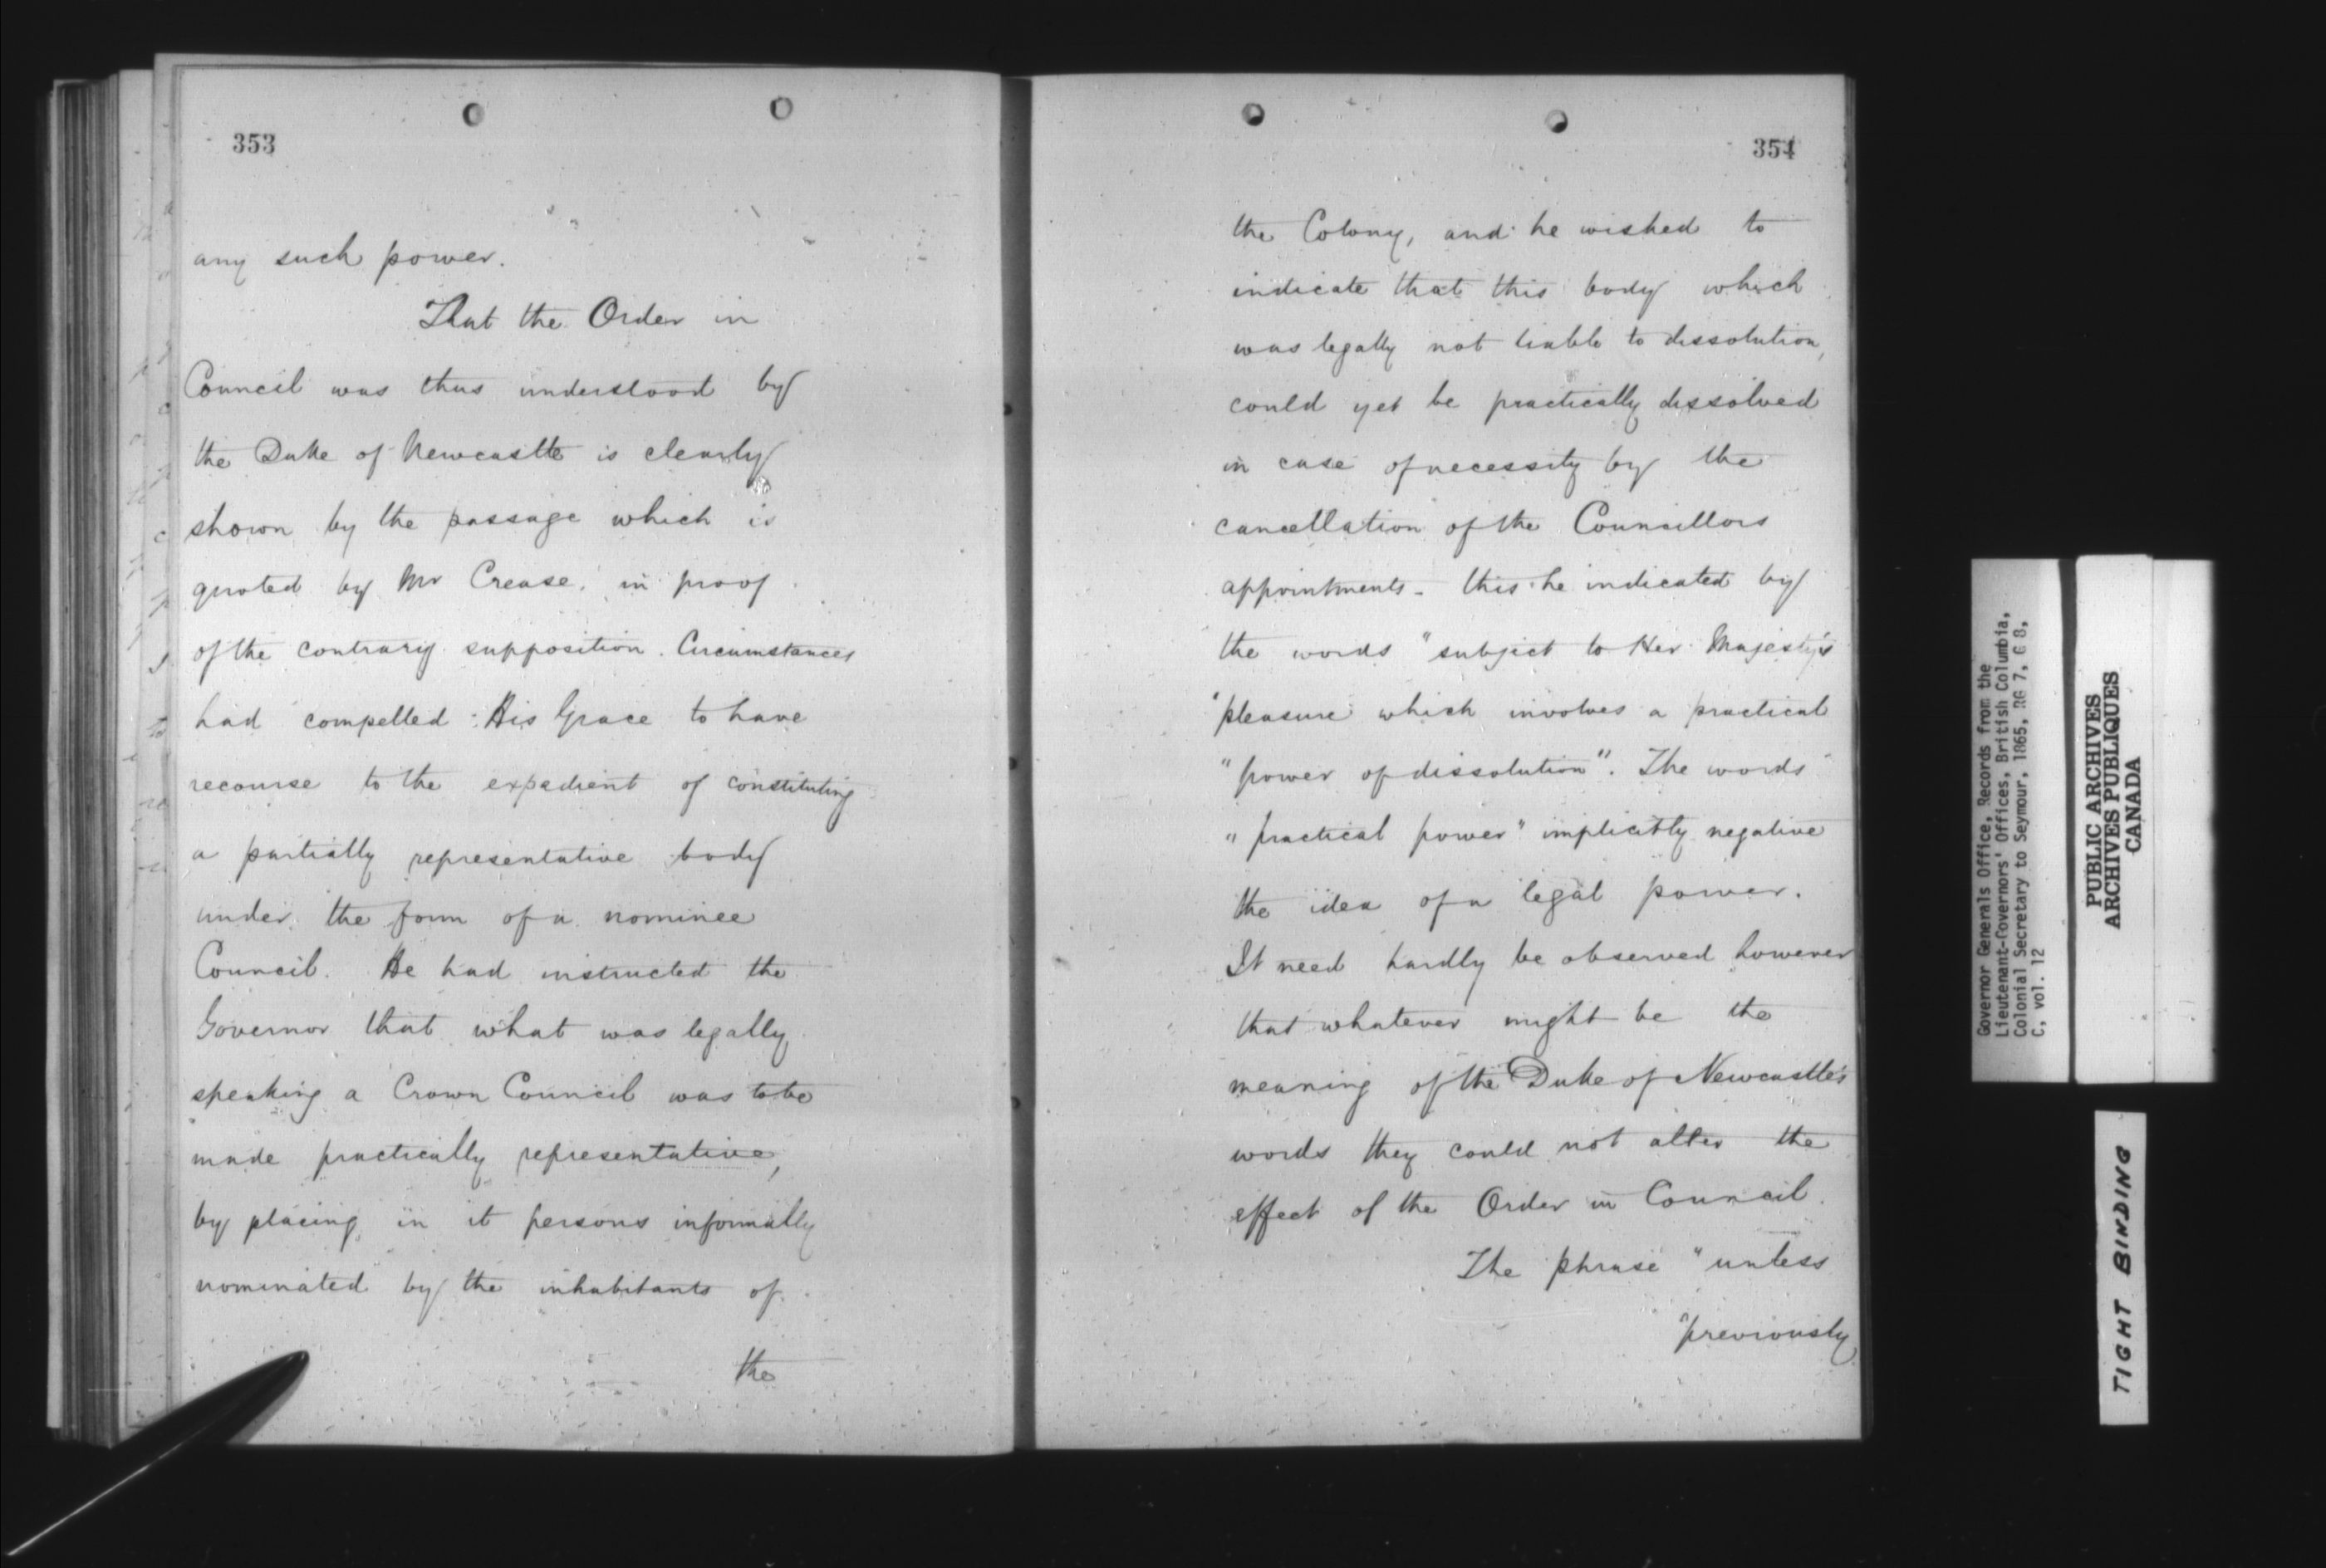 353
any such power.
That the Order in
Council was thus understood by
the Duke of Newcastle is clearly
shown by the passage which is
quoted by Mr Crease, in proof
of the contrary supposition. Circumstances
had compelled His Grace to have
recourse to the expedient of constituting
a partially representative body
under the form of a nominee
Council. He had instructed the
Governor that what was legally
speaking a Crown Council was to be
made practically representative,
by placing in it persons informally
nominated by the inhabitants of
the
354
the Colony, and he wished to
indicate that this body which
was legally not liable to dissolution,
could yet be practically dissolved
in case of necessity by the
cancellation of the Councillors
appointments - this he indicated by
the words "subject to Her Majesty's
"pleasure which involves a practical
"power of dissolution". The words
"practical power" implicitly negative
the idea of a legal power.
It need hardly be observed however
that whatever might be the
meaning of the Duke of Newcastle's
words they could not alter the
effect of the Order in Council.
The phrase "unless
"previously
Governor Generals Office, Records from the
Lieutenant-Governors' Offices, British Columbia,
Colonial Secretary to Seymour, 1865, RG 7, G 8,
C, vol. 12
PUBLIC ARCHIVES
ARCHIVES PUBLIQUES
CANADA
TIGHT BINDING